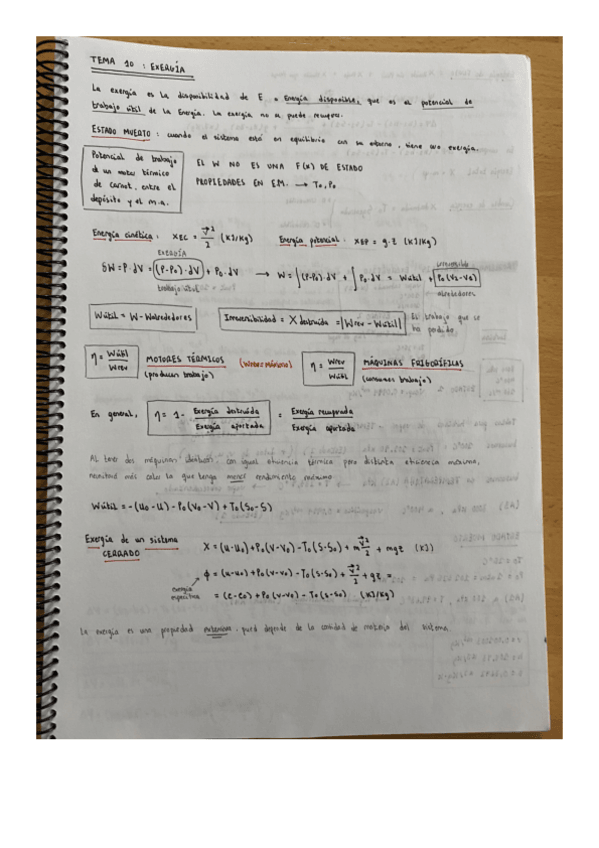 TEMA 10 : EXERGÍA
La exergía es la disponibilidad de E = Energía disponible, que es el potencial de
trabajo útil de la Energía. La exergía no se puede
ESTADO MUERTO : cuando el sistema está en equilibrio con su entorno, tiene cero exergía.
Potencial de trabajo
de un motor térmico
de Carnot, entre el
depósito y el m.a.
EL W NO ES UNA F(x) DE ESTADO
PROPIEDADES EN E.M. → To, Po
Energía cinética : XEC = V²/2 (KJ/Kg) Energía potencial : XEP = g·z (KJ/Kg)
EXERGÍA
δW = P·dV = (P-Po)·dV + Po·dV → W = ∫(P-Po)·dV + ∫Po·dV = Wútil + Po(V2-V1)
trabajo útil
alrededores
Wútil = W - Walrededores
Irreversibilidad = X destruida = |Wrev - Wútil|
El trabajo que se
ha perdido
η = Wútil/Wrev
MOTORES TÉRMICOS (Wrev máximo)
(producen trabajo)
η = Wrev/Wútil
MÁQUINAS FRIGORÍFICAS
(consumen trabajo)
En general, η = 1 - Exergía destruida/Exergía aportada = Exergía recuperada/Exergía aportada
Al tener dos máquinas idénticas, con igual eficiencia térmica pero distinta eficiencia máxima,
necesitará más calor la que tenga menor rendimiento máximo
Wútil = -(Uo-U) - Po(Vo-V) + To(So-S)
Exergía de un sistema
CERRADO
X = (U-Uo) + Po(V-Vo) - To(S-So) + m V²/2 + mgz (KJ)
ϕ = (u-uo) + Po(v-vo) - To(s-so) + V²/2 + gz =
exergía
específica
= (e-eo) + Po(v-vo) - To(s-so) (KJ/Kg)
La exergía es una propiedad extensiva, pues depende de la cantidad de materia del sistema.